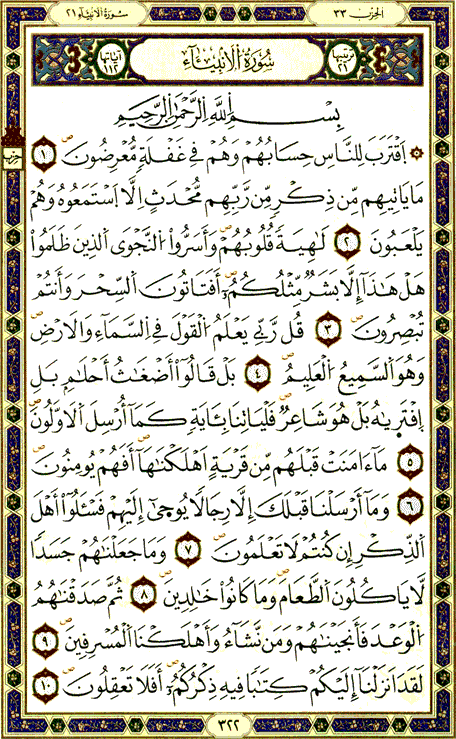 الحزب ٣٣
سورة الانبياء ٢١
ترتيبها ٢١
سُورَةُ الْانْبِيَاءِ
آياتها ١١٢
بِسْمِ اللَّهِ الرَّحْمَٰنِ الرَّحِيمِ
اِقْتَرَبَ لِلنَّاسِ حِسَابُهُمْ وَهُمْ فِي غَفْلَةٍ مُّعْرِضُونَ ١
حزب
مَا يَاتِيهِم مِّن ذِكْرٍ مِّن رَّبِّهِم مُّحْدَثٍ اِلَّا اَسْتَمَعُوهُ وَهُمْ
يَلْعَبُونَ ٢ لَٰهِيَةً قُلُوبُهُمْ وَأَسَرُّوا۟ النَّجْوَى الَّذِينَ ظَلَمُوا۟
هَلْ هَٰذَا إِلَّا بَشَرٌ مِّثْلُكُمُ أَفَتَاتُونَ السِّحْرَ وَأَنتُمْ
تُبْصِرُونَ ٣ قُل رَّبِّي يَعْلَمُ الْقَوْلَ فِي السَّمَاءِ وَالَارْضِ
وَهُوَ السَّمِيعُ الْعَلِيمُ ٤ بَلْ قَالُوا۟ أَضْغَٰثُ أَحْلَٰمٍ بَلِ
اِفْتَرَىٰهُ بَلْ هُوَ شَاعِرٌ فَلْيَاتِنَا بِـَٔايَةٍ كَمَا أُرْسِلَ الَاوَّلُونَ
٥ مَا ءَامَنَتْ قَبْلَهُم مِّن قَرْيَةٍ اَهْلَكْنَٰهَا أَفَهُمْ يُومِنُونَ
٦ وَمَا أَرْسَلْنَا قَبْلَكَ إِلَّا رِجَالًا يُوحَىٰ إِلَيْهِمْ فَسْـَٔلُوا۟ أَهْلَ
الذِّكْرِ إِن كُنتُمْ لَا تَعْلَمُونَ ٧ وَمَا جَعَلْنَٰهُمْ جَسَدًا
لَّا يَاكُلُونَ الطَّعَامَ وَمَا كَانُوا۟ خَٰلِدِينَ ٨ ثُمَّ صَدَقْنَٰهُمُ
الْوَعْدَ فَأَنجَيْنَٰهُمْ وَمَن نَّشَاءُ وَأَهْلَكْنَا الْمُسْرِفِينَ ٩
لَقَدَ اَنزَلْنَا إِلَيْكُمْ كِتَٰبًا فِيهِ ذِكْرُكُمُ أَفَلَا تَعْقِلُونَ ١٠
٣٢٢